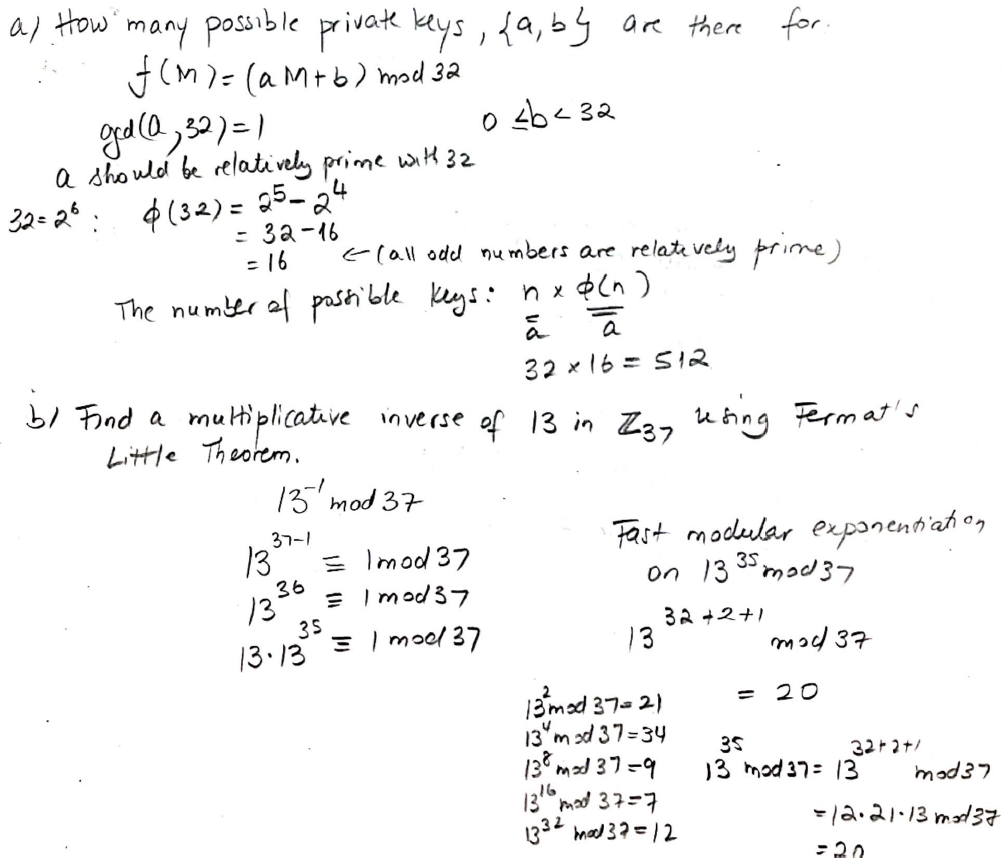 a) How many possible private keys, {a, b} are there for
f(M) = (aM+b) mod 32
gcd(a, 32) = 1
0 ≤ b < 32
a should be relatively prime with 32
32 = 2^6 : φ(32) = 2^5 - 2^4
= 32 - 16
= 16 ← (all odd numbers are relatively prime)
The number of possible keys: n × φ(n)
a a
32 × 16 = 512
b) Find a multiplicative inverse of 13 in ℤ37 using Fermat's
Little Theorem.
13^-1 mod 37
13^37-1 ≡ 1 mod 37
13^36 ≡ 1 mod 37
13·13^35 ≡ 1 mod 37
Fast modular exponentiation
on 13^35 mod 37
13^32+2+1 mod 37
= 20
13^2 mod 37 = 21
13^4 mod 37 = 34
13^8 mod 37 = 9
13^16 mod 37 = 7
13^32 mod 37 = 12
13^35 mod 37 = 13^32+2+1 mod 37
= 12·21·13 mod 37
= 20